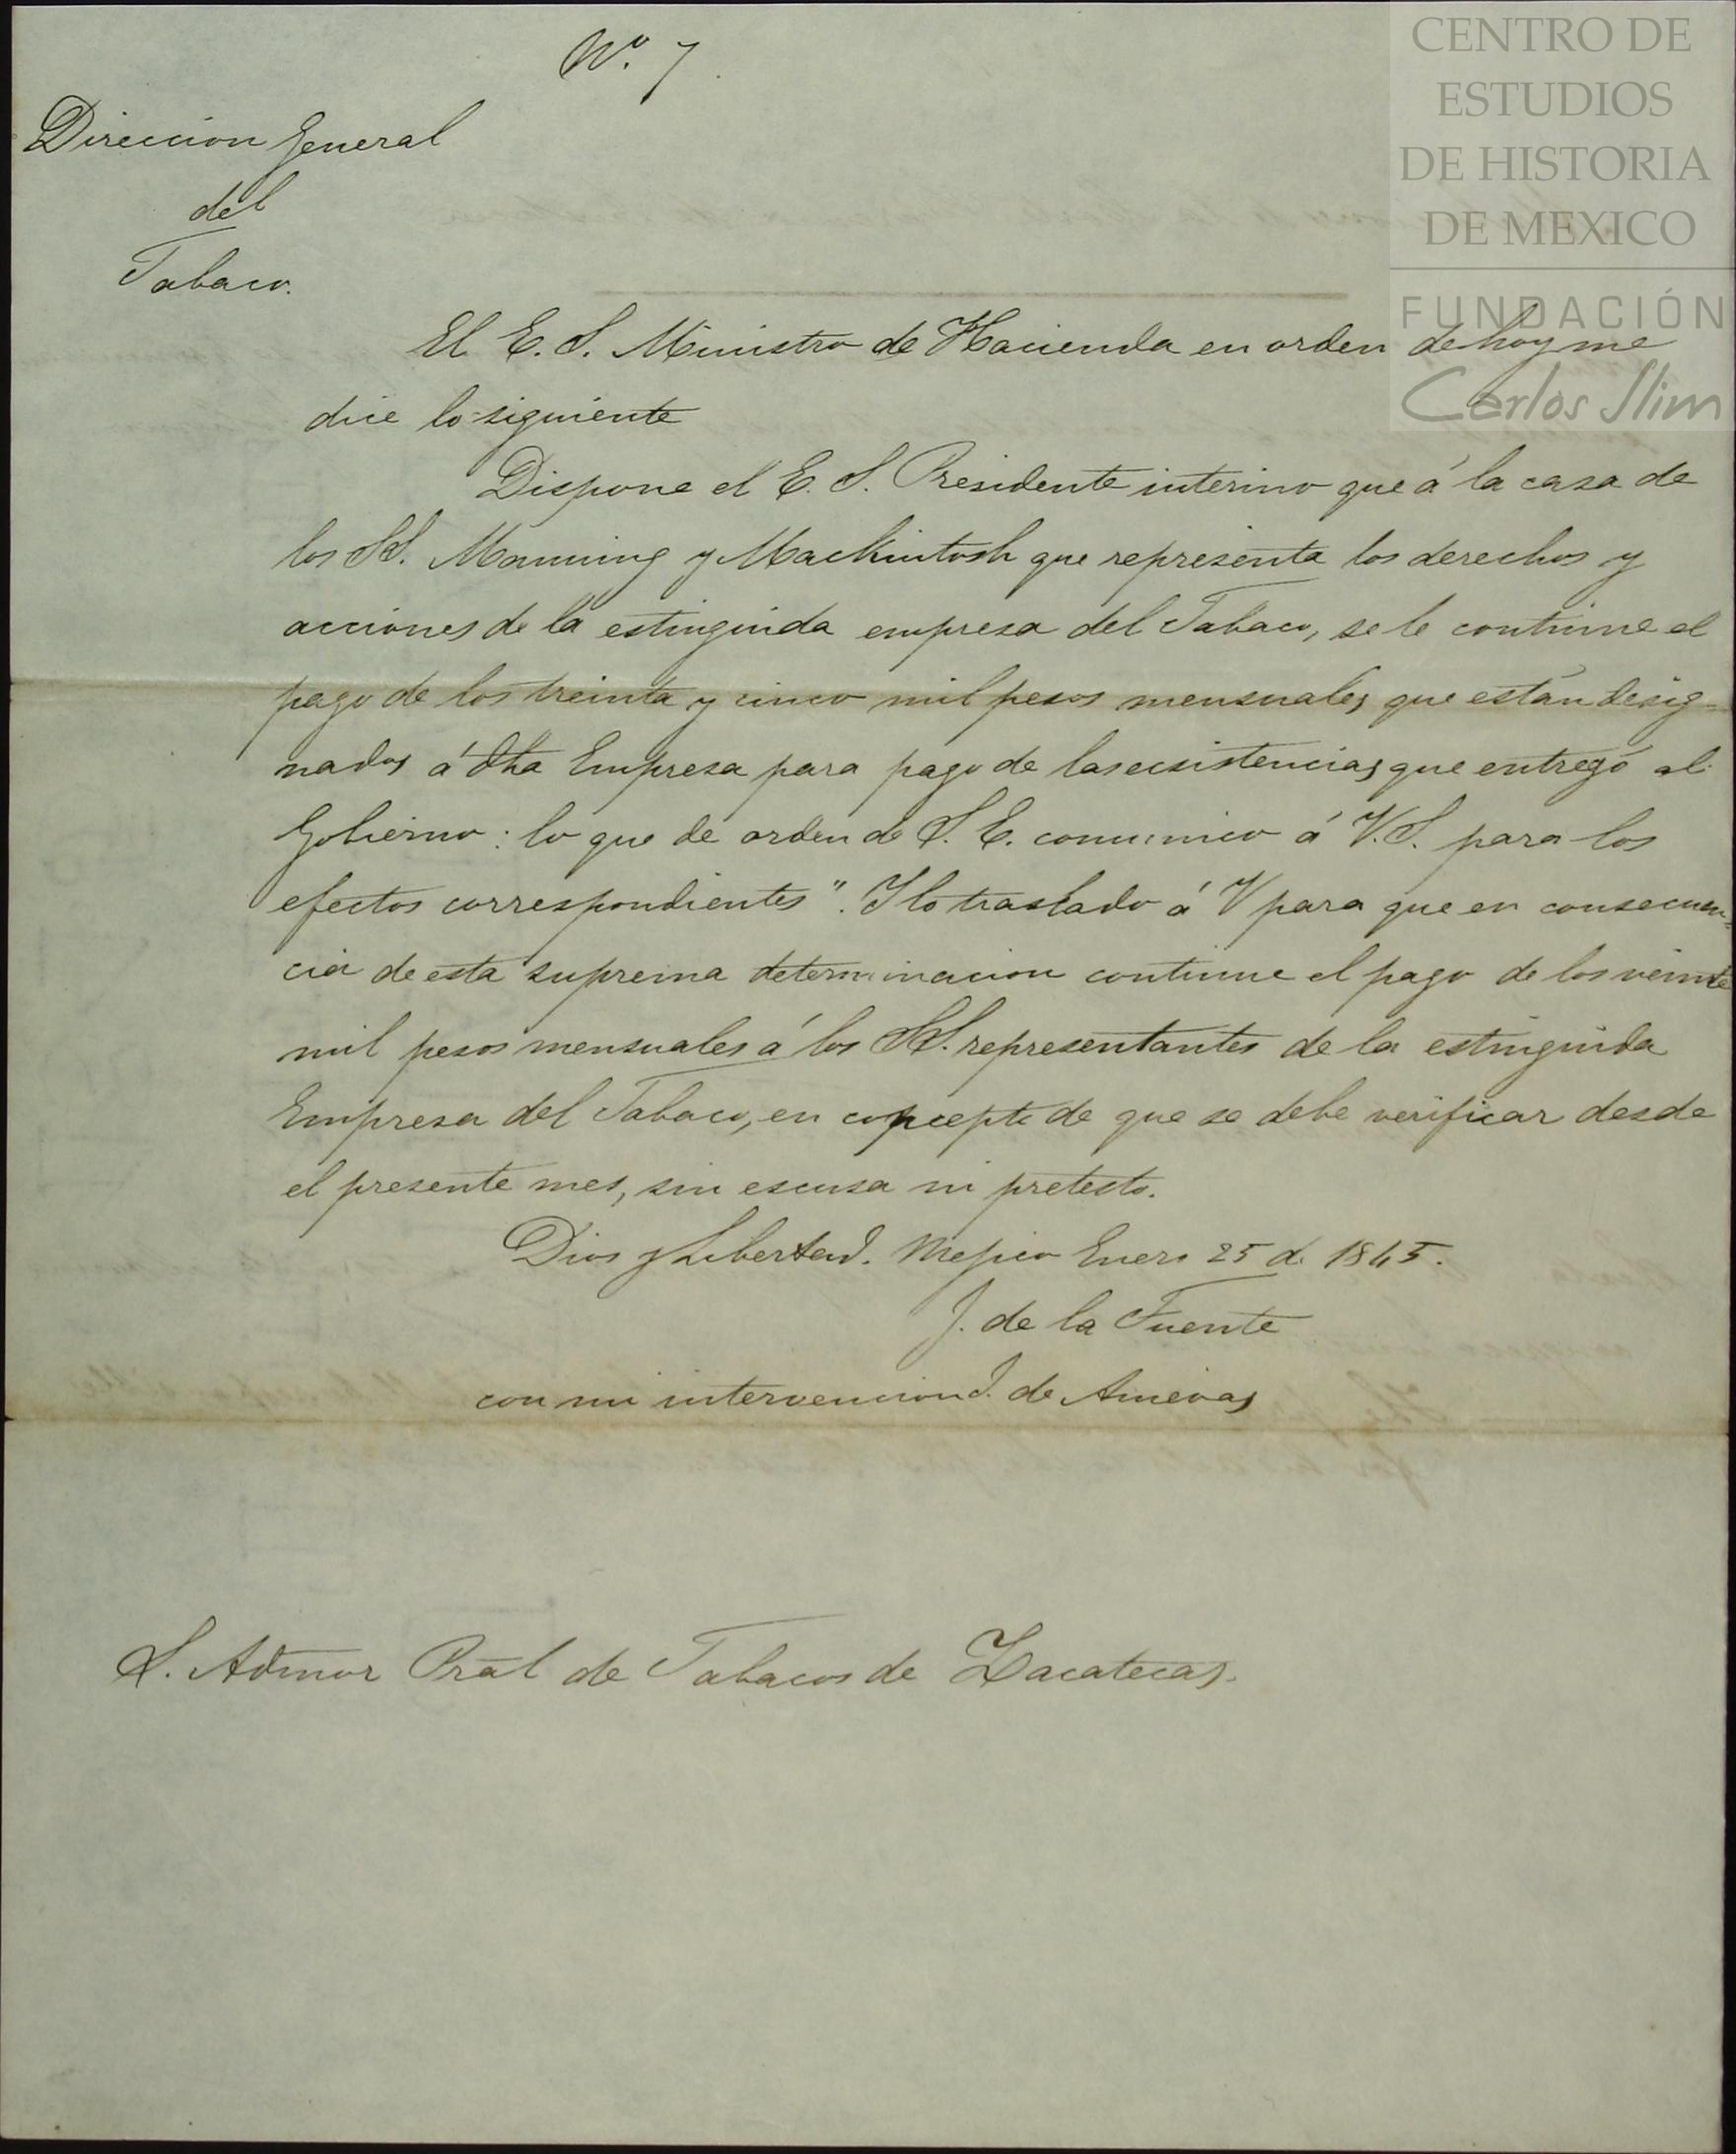 Nº. 7.
CENTRO DE
ESTUDIOS
DE HISTORIA
DE MEXICO
FUNDACIÓN
Carlos Slim
Direccion General
del
Tabaco.
El E. S. Ministro de Hacienda en orden de hoy me
dice lo siguiente
Dispone el E. S. Presidente interino que á la casa de
los SS. Manning y Mackintosh que representa los derechos y
acciones de la estinguida empresa del Tabaco, se le continue el
pago de los treinta y cinco mil pesos mensuales que están desig-
nados á dha Empresa para pago de las ecsistencias que entregó al
Gobierno: lo que de orden de S. E. comunico á V.S. para los
efectos correspondientes". Y lo traslado á V para que en consecuen=
cia de esta suprema determinacion continue el pago de los veinte
mil pesos mensuales á los SS. representantes de la estinguida
Empresa del Tabaco, en concepto de que se debe verificar desde
el presente mes, sin escusa ni pretesto.
Dios y Libertad. Mejico Enero 25 de 1845.
J. de la Fuente
con mi intervencion J. de Amievas
S. Admor Pral de Tabacos de Zacatecas.